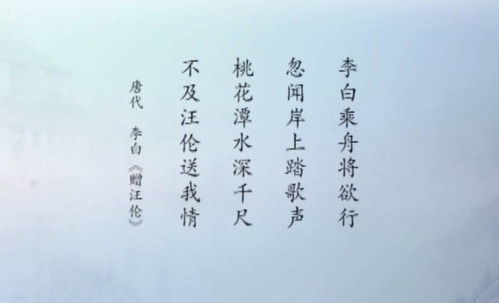 李白乘舟将欲行
忽闻岸上踏歌声
桃花潭水深千尺
不及汪伦送我情
唐代 李白《赠汪伦》